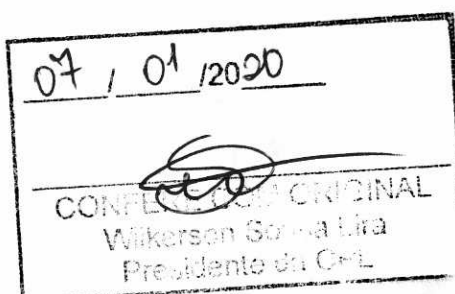 07 / 01 /2020
CONFERE COM ORIGINAL
Wilkerson Lira
Presidente da CPL